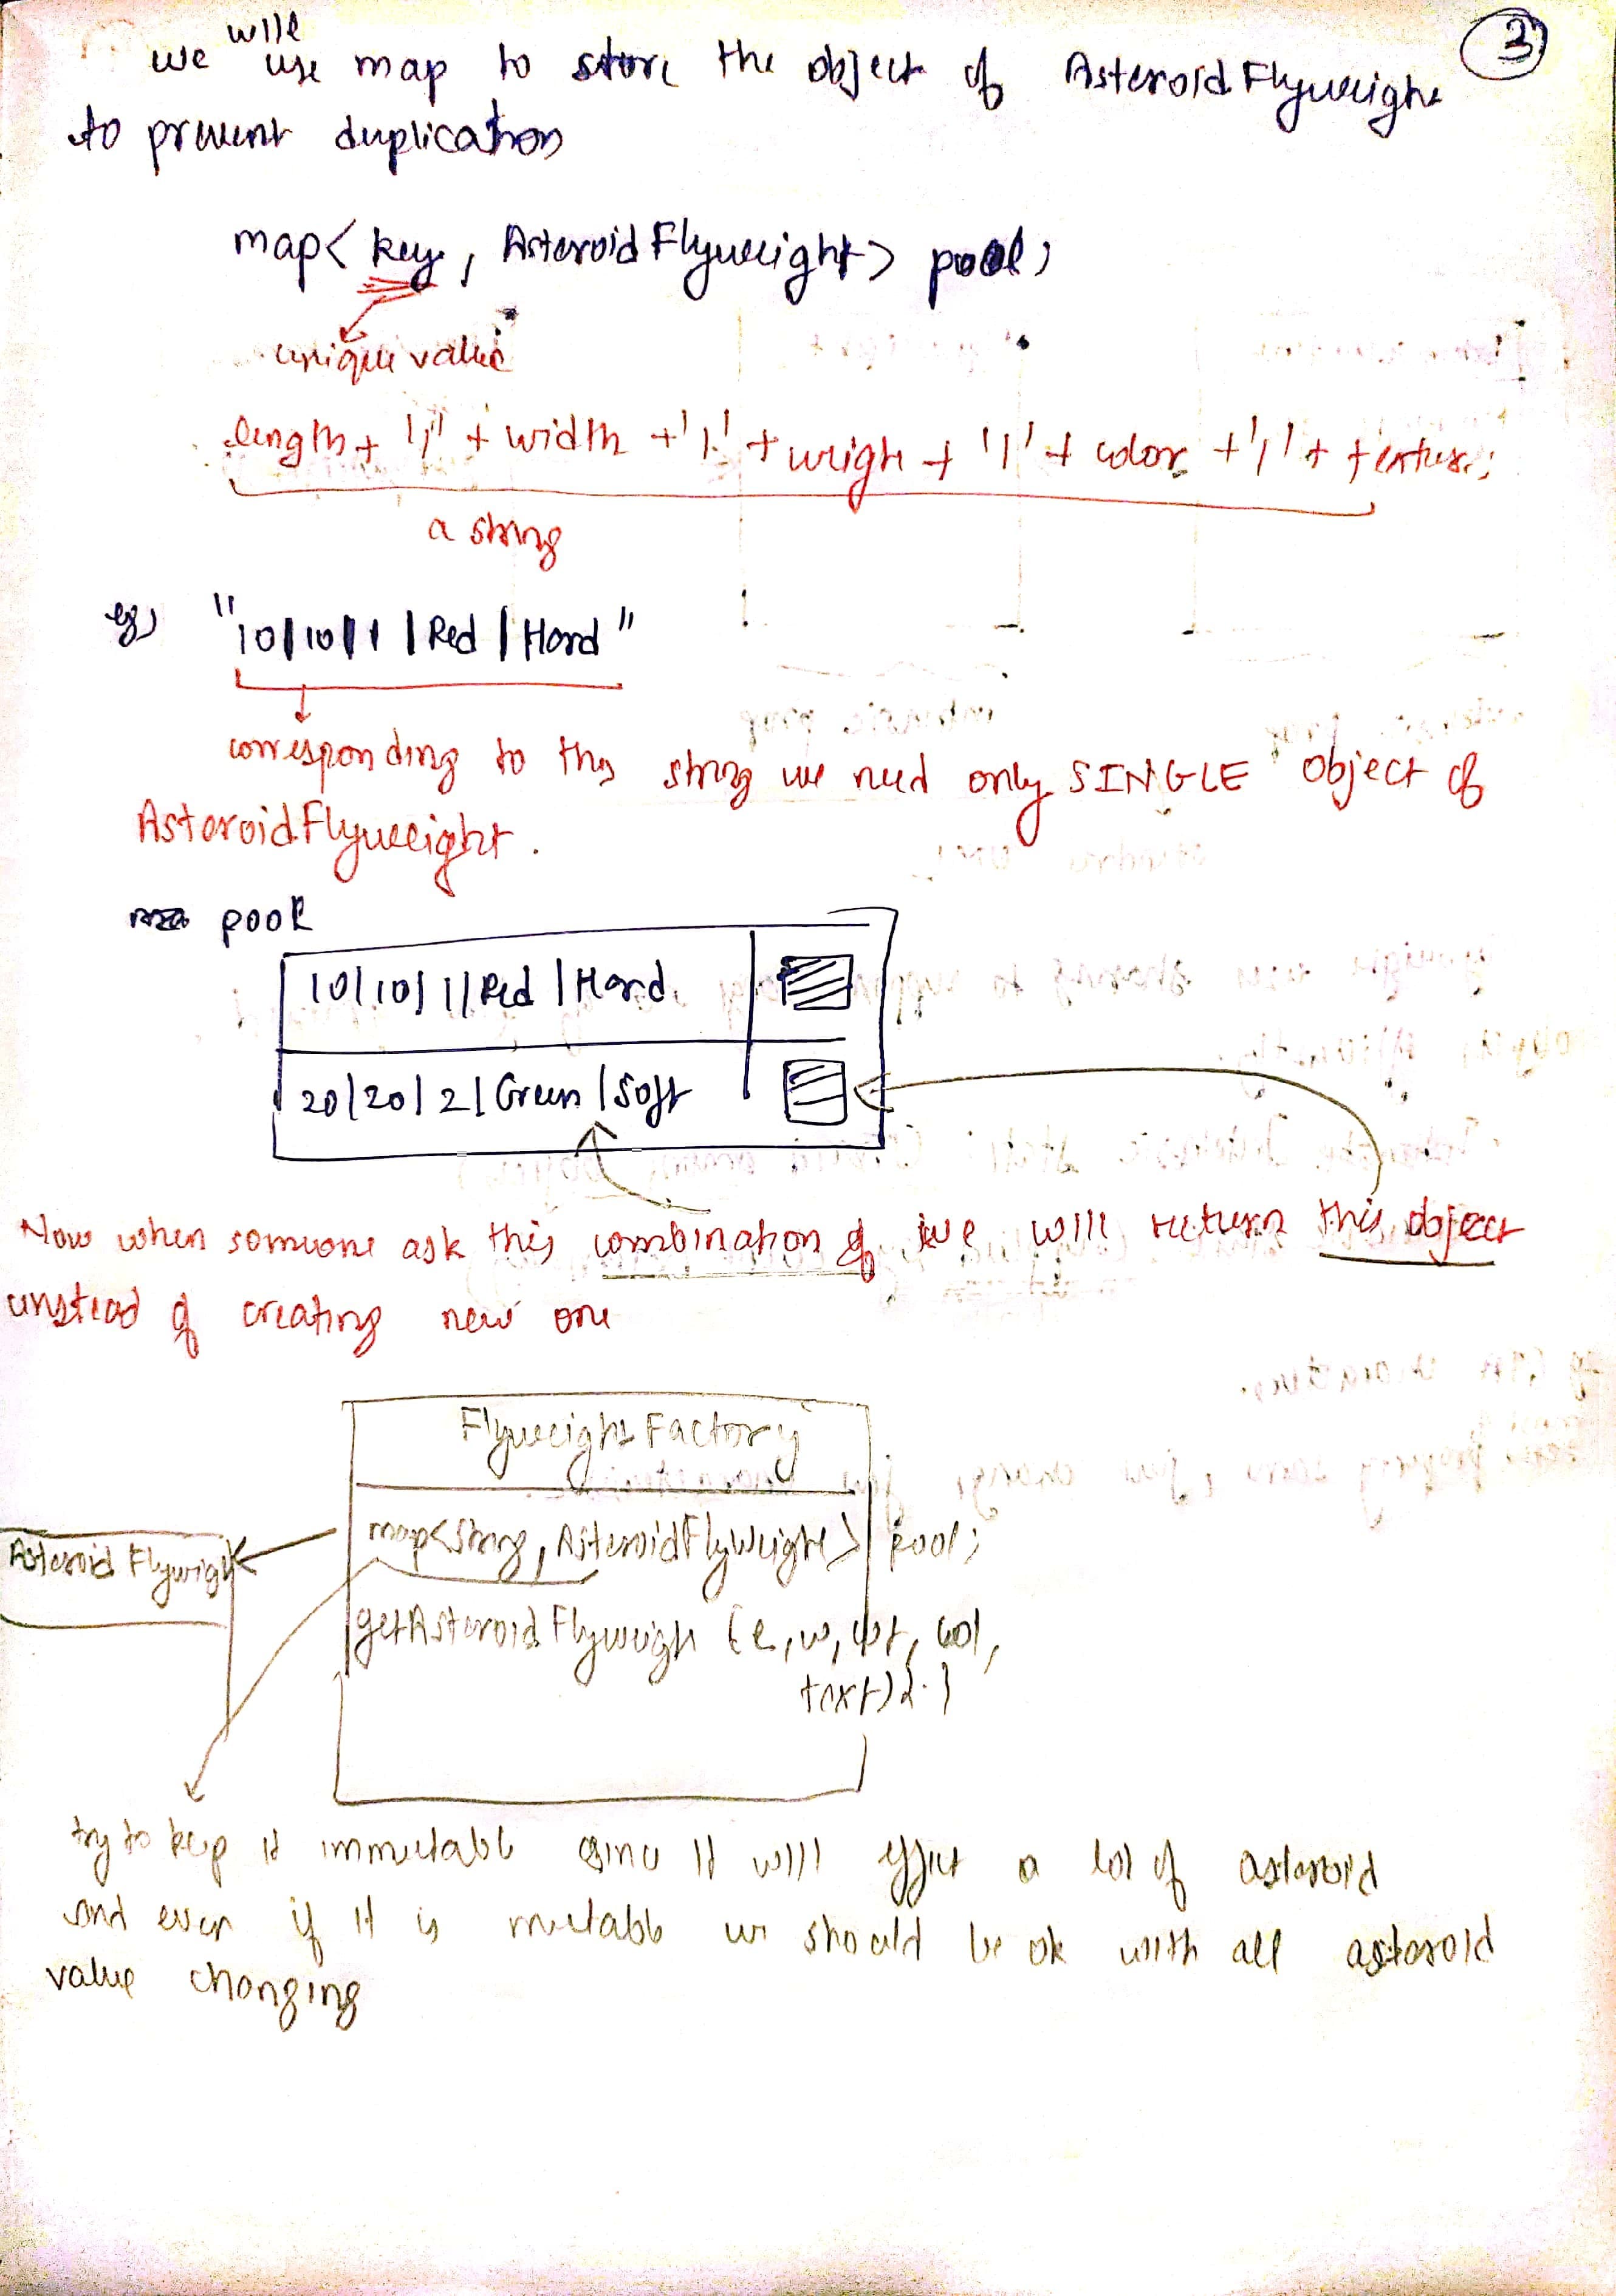 3
we will use map to store the object of AsteroidFlyweight
to prevent duplication
map< key, AsteroidFlyweight> pool;
unique value
length + '|' + width + '|' + weight + '|' + color + '|' + texture;
a string
eg) "10|10|1|Red|Hard"
corresponding to this string we need only SINGLE object of
AsteroidFlyweight.
pool
10|10|1|Red|Hard
20|20|2|Green|Soft
Now when someone ask this combination of we will return this object
instead of creating new one
Flyweight Factory
map<string, AsteroidFlyWeight> pool;
Asteroid Flyweigh
getAsteroidFlyweigh (l, w, wt, col,
text){.}
try to keep it immutable since it will effect a lot of asteroid
and even if it is mutable we should be ok with all asteroid
value changing